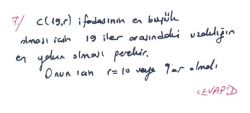 7/ C(19,r) ifadesinin en büyük
olması için 19 ile r arasındaki uzaklığın
en yakın olması gerekir.
Onun için r=10 veya 9 ar olmalı
CEVAP D